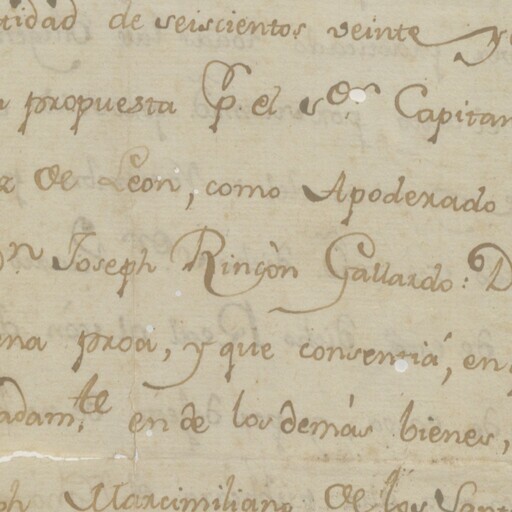 tidad de seiscientos veinte y
propuesta p.r el s.or Capitan
de Leon, como Apoderado
Dn Joseph Rincòn Gallardo: D
ena proa, y que consentia, en
adam.te en de los demás bienes,
ph Marcimiliano de los Sant